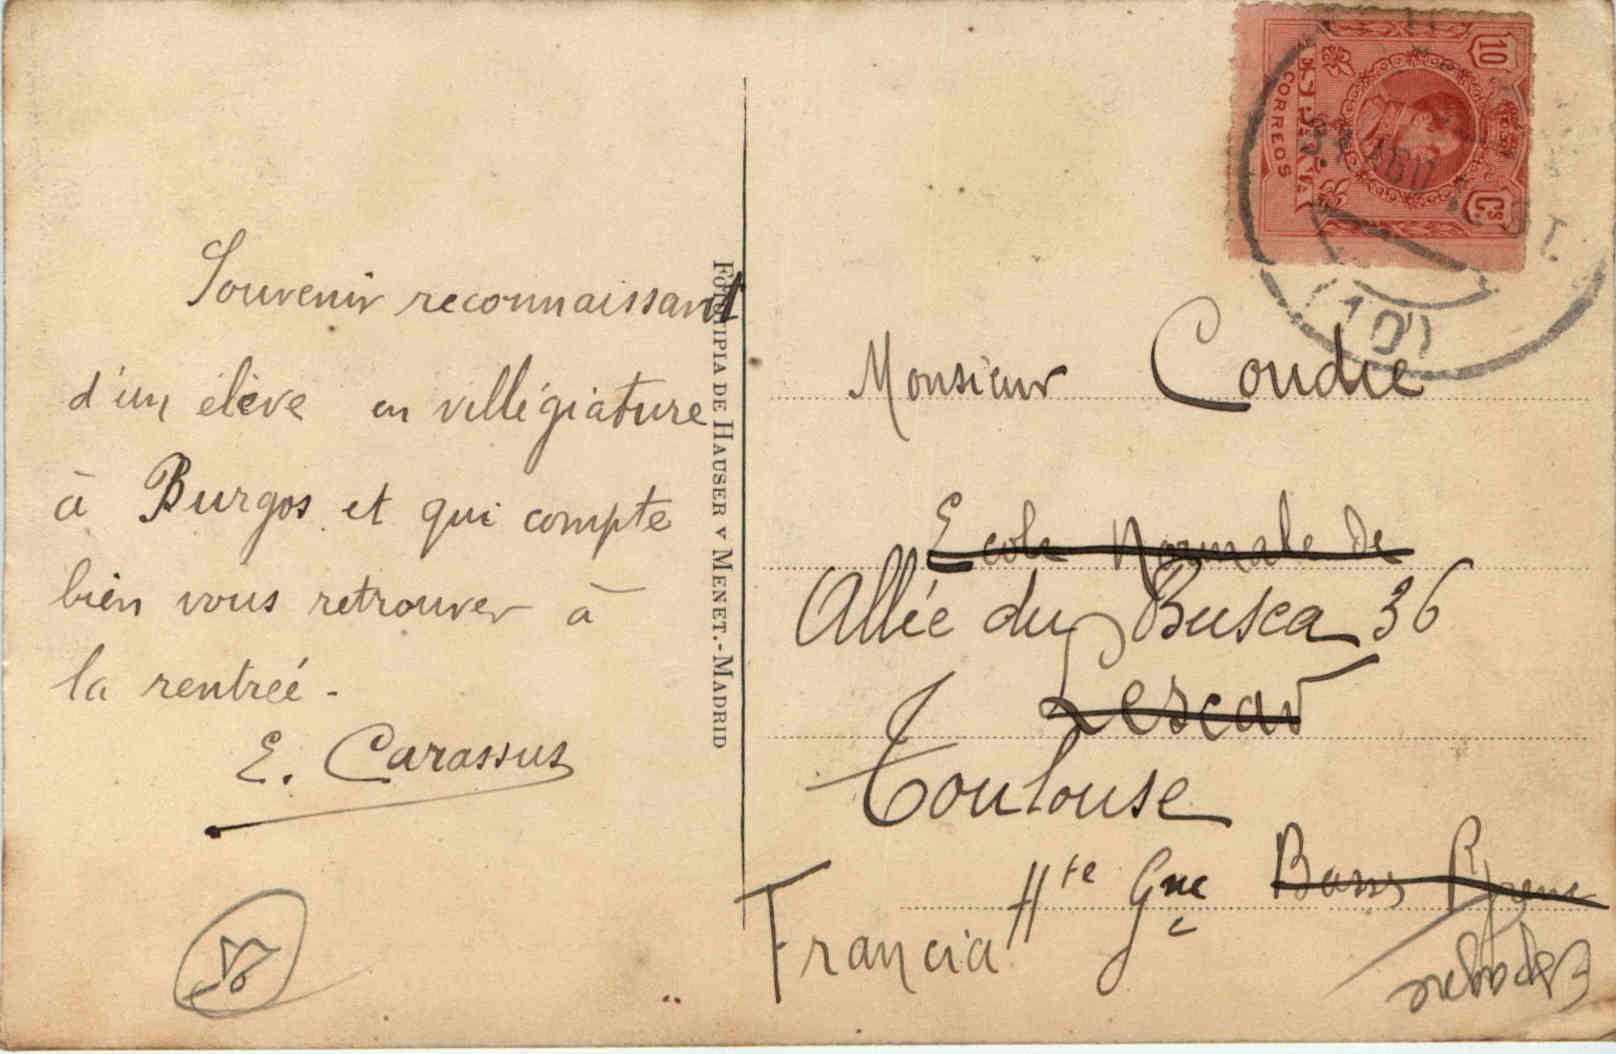 Souvenir reconnaissant
d'un élève en villégiature
à Burgos et qui compte
bien vous retrouver à
la rentrée -
E. Carassus
FOTOTIPIA DE HAUSER Y MENET.-MADRID
10 Cs
CORREOS
ESPAÑA
Monsieur Coudre
Ecole Normale de
Allée du Busca 36
Lescar
Toulouse
Hte Gne Basses Pyrene
Francia